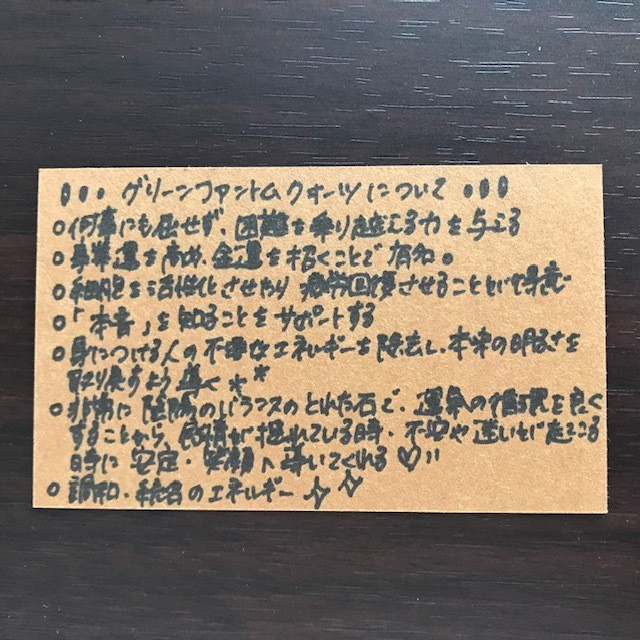 グリーンファントムクォーツについて
○何事にも屈せず、困難を乗り越える力を与える
○事業運を高め、金運を招くことで有名。
○細胞を活性化させたり 疲労回復させることが得意
○「本音」を知ることをサポートする
○身につける人の不要なエネルギーを除去し、本来の明るさを
取り戻すよう導く**
○非常に陰陽のバランスのとれた石で、運気の循環を良く
することから、感情が揺れている時・不安や迷いが起こる
時に 安定・笑顔へ導いてくれる♡
○調和・統合のエネルギー